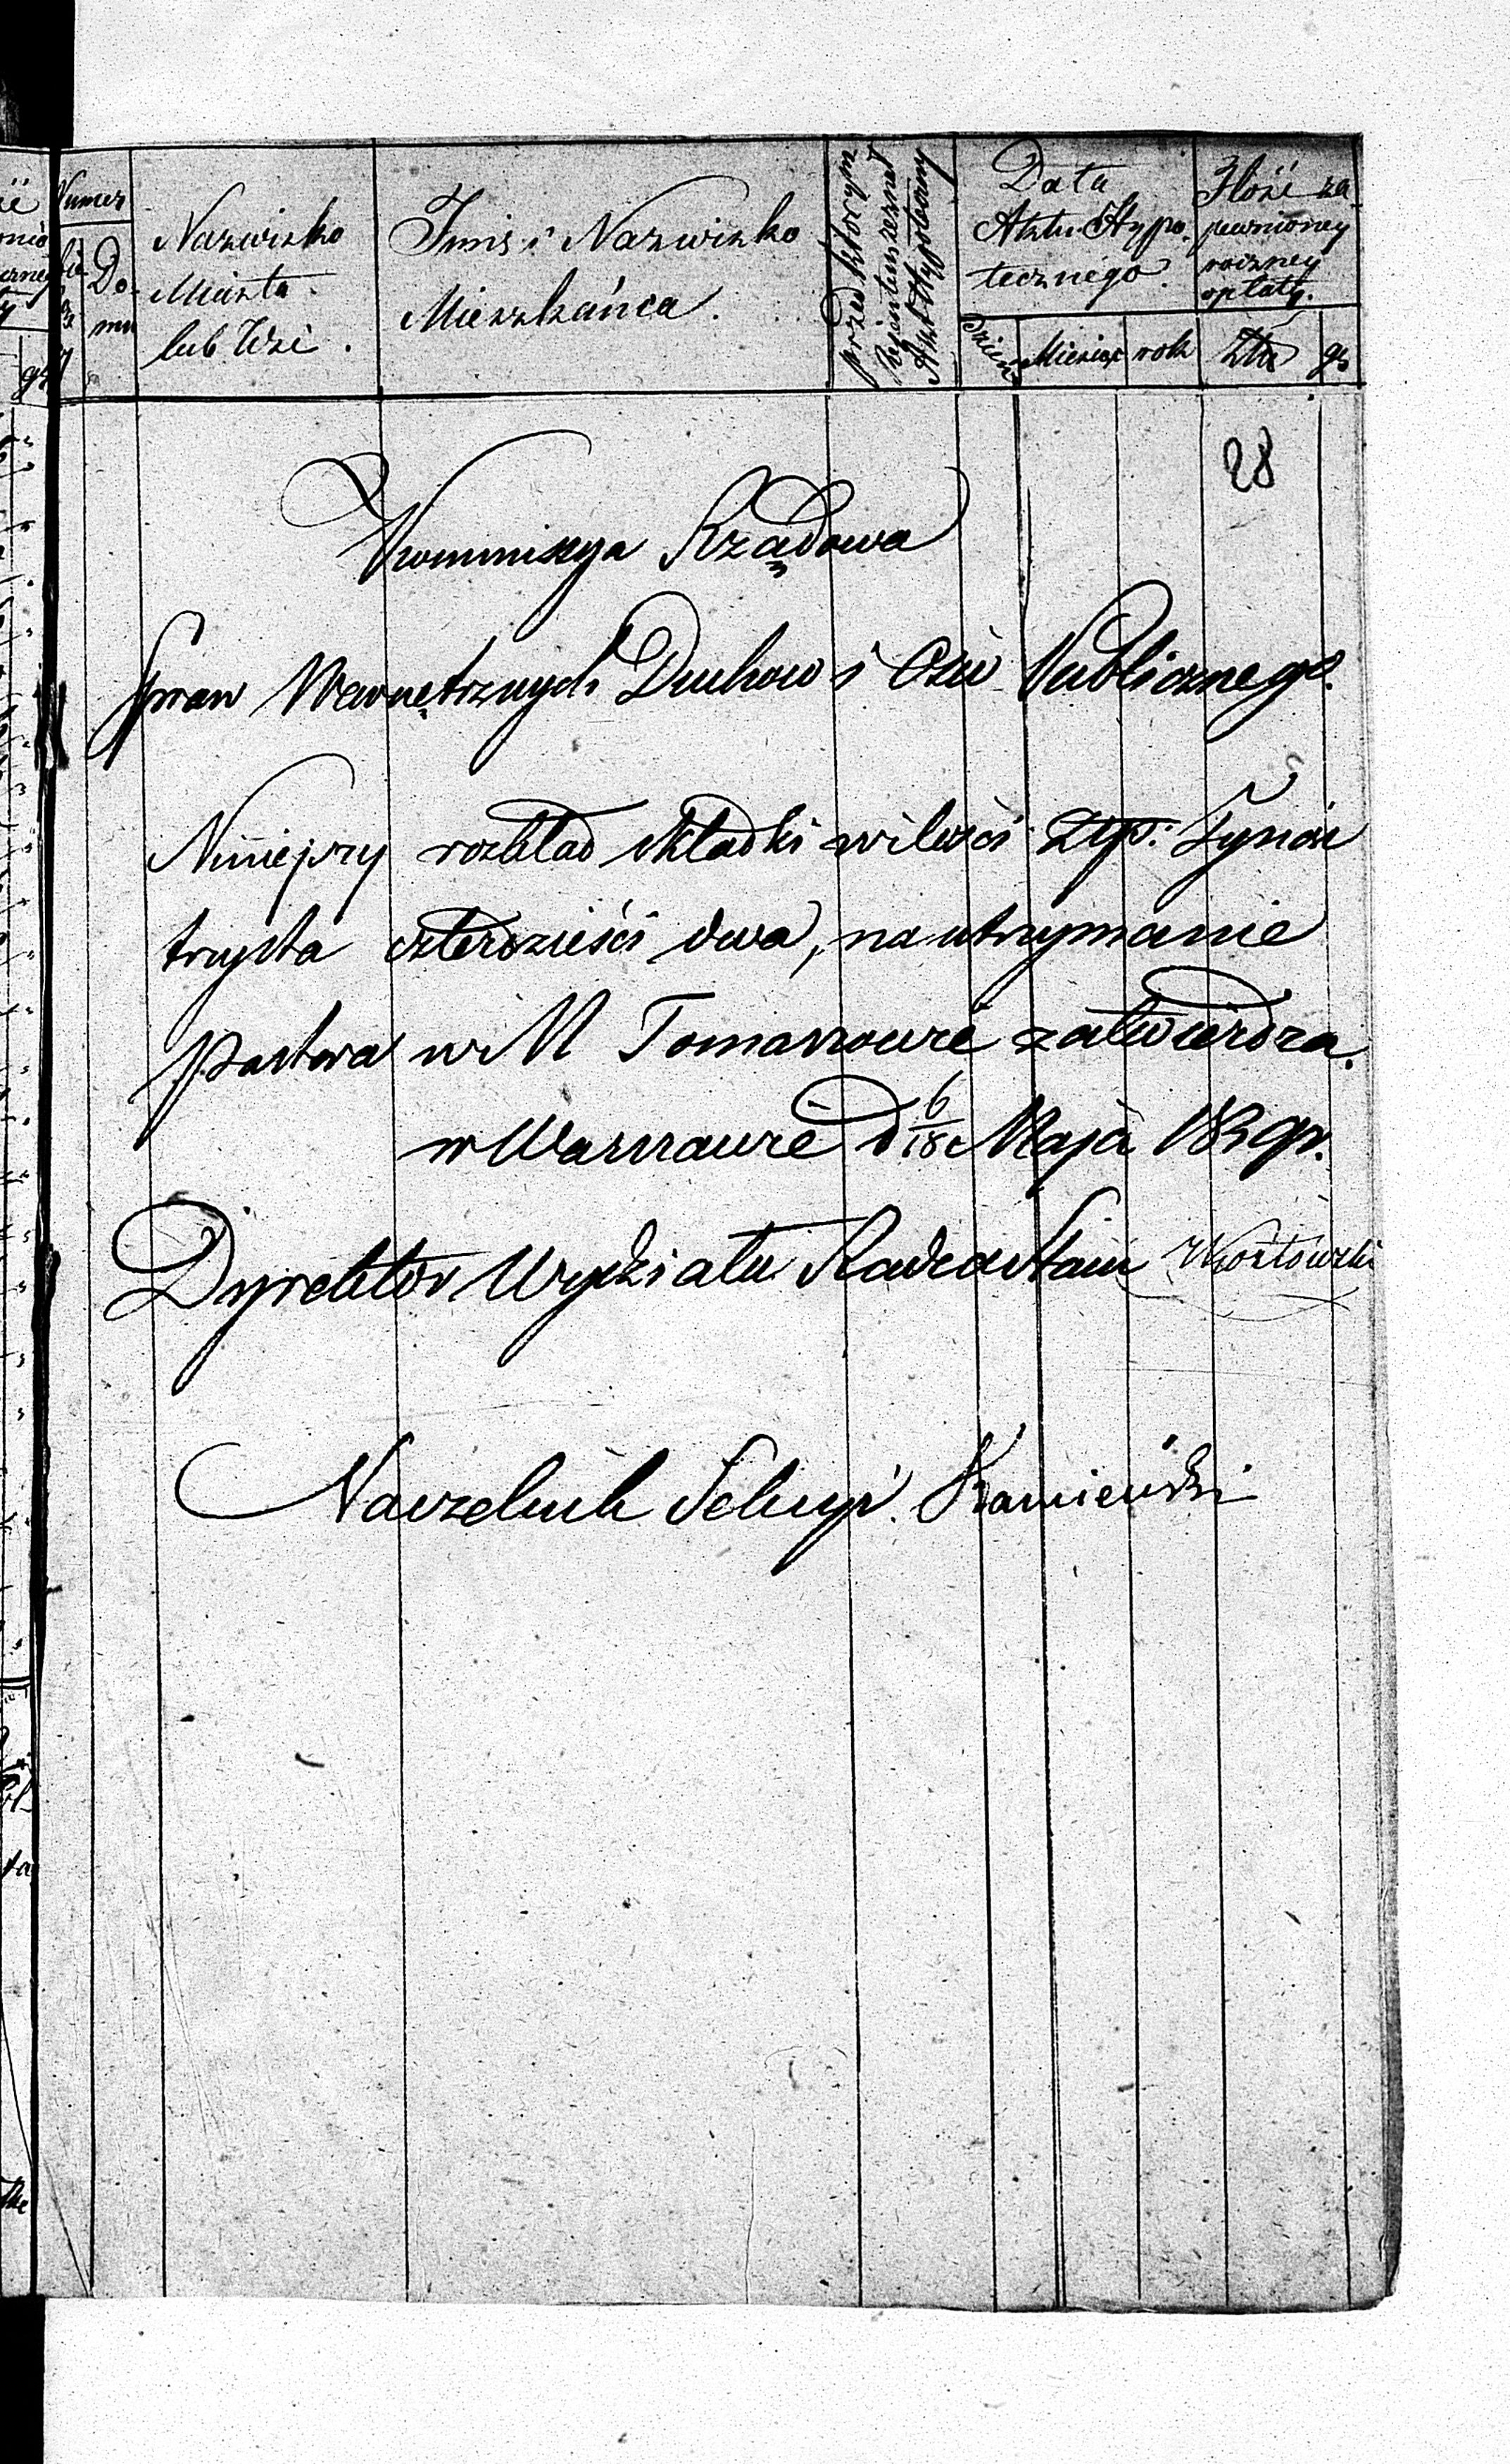 Numer
Do-
mu
Nazwisko
Miasta
lub Wsi.
Imię i Nazwisko
Mieszkańca.
przed którym
Akt Hypoteczny
Data
Aktu Hypo.
tecznego.
Dzień
Miesiąc
rok
Ilość za-
pewnioney
roczney
opłaty.
Złte
gr
28
Kommissya Rządowa
Spraw Wewnętrznych Duchow i Ośw Publicznego.
Niniejszy rozkład składki w ilości Złp: Tysiąc
trzysta czterdzieści dwa, na utrzymanie
pastora w M Tomaszowie zatwierdza.
w Warszawie d 6/18 Maja 1829 r.
Dyrektor Wydziału Radca Stanu
Naczelnik Sekcyi. Kamieński